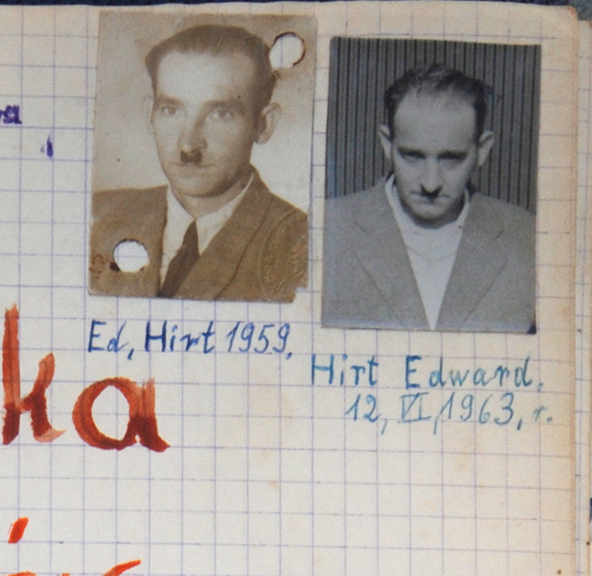 Ed, Hirt 1959,
Hirt Edward,
12, VI, 1963, r.
ka